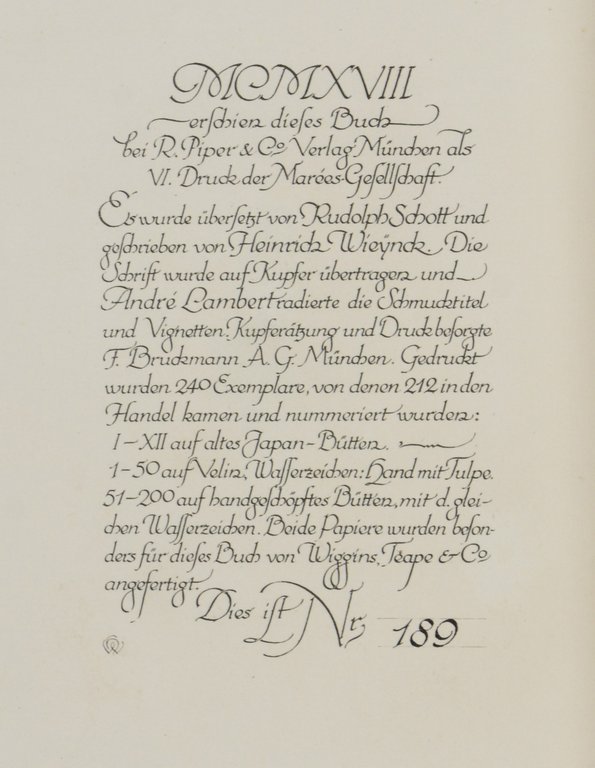 MCMXVIII
erschien dieses Buch
bei R. Piper & Co Verlag München als
VI. Druck der Marées-Gesellschaft.
Es wurde übersetzt von Rudolph Schott und
geschrieben von Heinrich Wieÿnck. Die
Schrift wurde auf Kupfer übertragen und
André Lambert radierte die Schmucktitel
und Vignetten. Kupferätzung und Druck besorgte
F. Bruckmann A. G. München. Gedruckt
wurden 240 Exemplare, von denen 212 in den
Handel kamen und nummeriert wurden:
I–XII auf altes Japan-Bütten.
1–50 auf Velin, Wasserzeichen: Hand mit Tulpe.
51–200 auf handgeschöpftes Bütten, mit d. glei-
chen Wasserzeichen. Beide Papiere wurden beson-
ders für dieses Buch von Wiggins, Teape & Co
angefertigt.
Dies ist Nr. 189